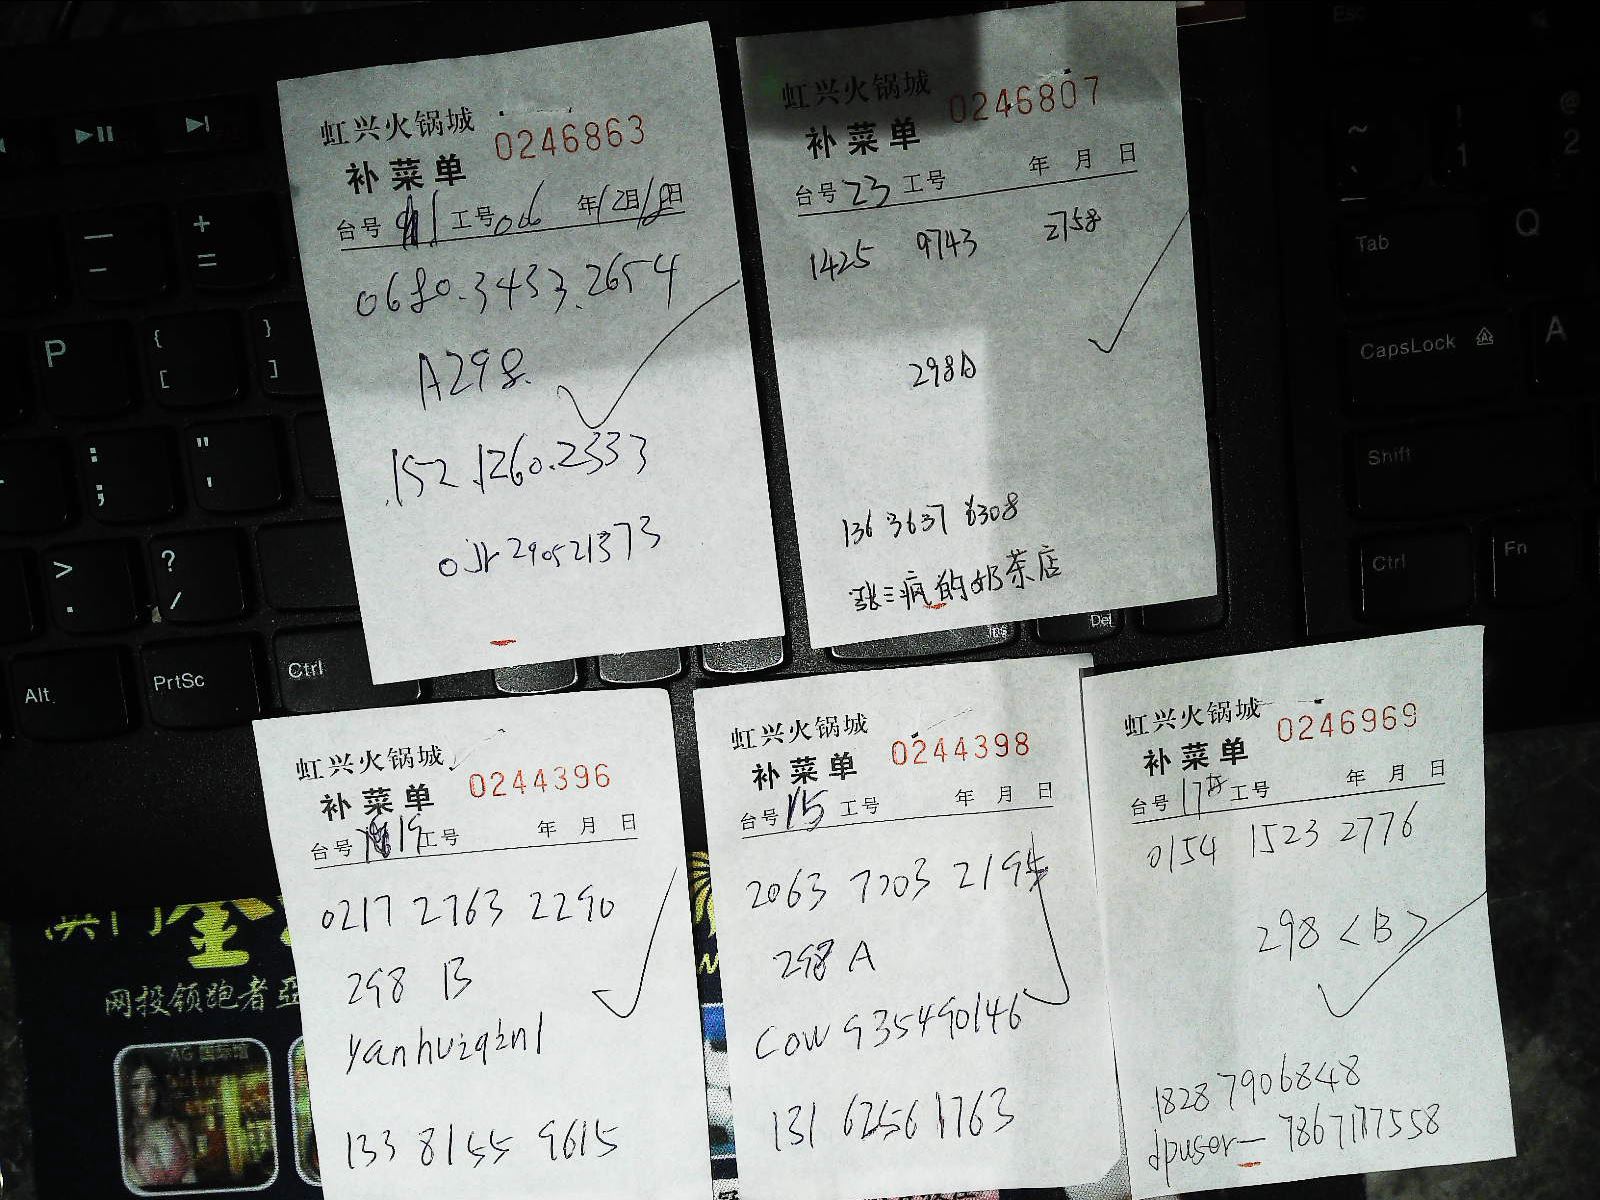 虹兴火锅城
0246863
补菜单
台号 11 工号 006 年12月18日
0680.3433.2654
A298.
152.1260.2333
290521373
虹兴火锅城
0246807
补菜单
台号 23 工号 年 月 日
1425 9743 2758
298A
136 3637 6308
张三疯的奶茶店
虹兴火锅城
0244396
补菜单
台号 19 工号 年 月 日
0217 2763 2290
298 B
yanhuiqin1
133 8155 9615
虹兴火锅城
0244398
补菜单
台号 15 工号 年 月 日
2063 7203 2195
298 A
cow 935490146
131 6256 1763
虹兴火锅城
0246969
补菜单
台号 17 工号 年 月 日
0154 1523 2776
298 <B>
1828 7906848
dpuser— 7867177558
P
{
[
}
]
+
=
:
;
"
'
>
.
?
/
Alt
PrtSc
Ctrl
Ins
Del
Esc
~
!
1
@
2
Tab
Q
CapsLock
A
Shift
Ctrl
Fn
澳门金
网投领跑者
AG 国际馆